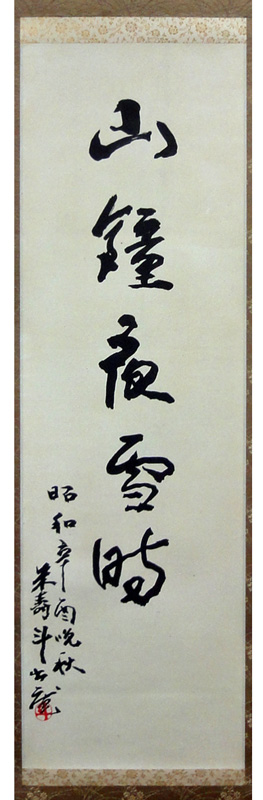 山鐘夜雪時
昭和辛酉晩秋
米壽斗